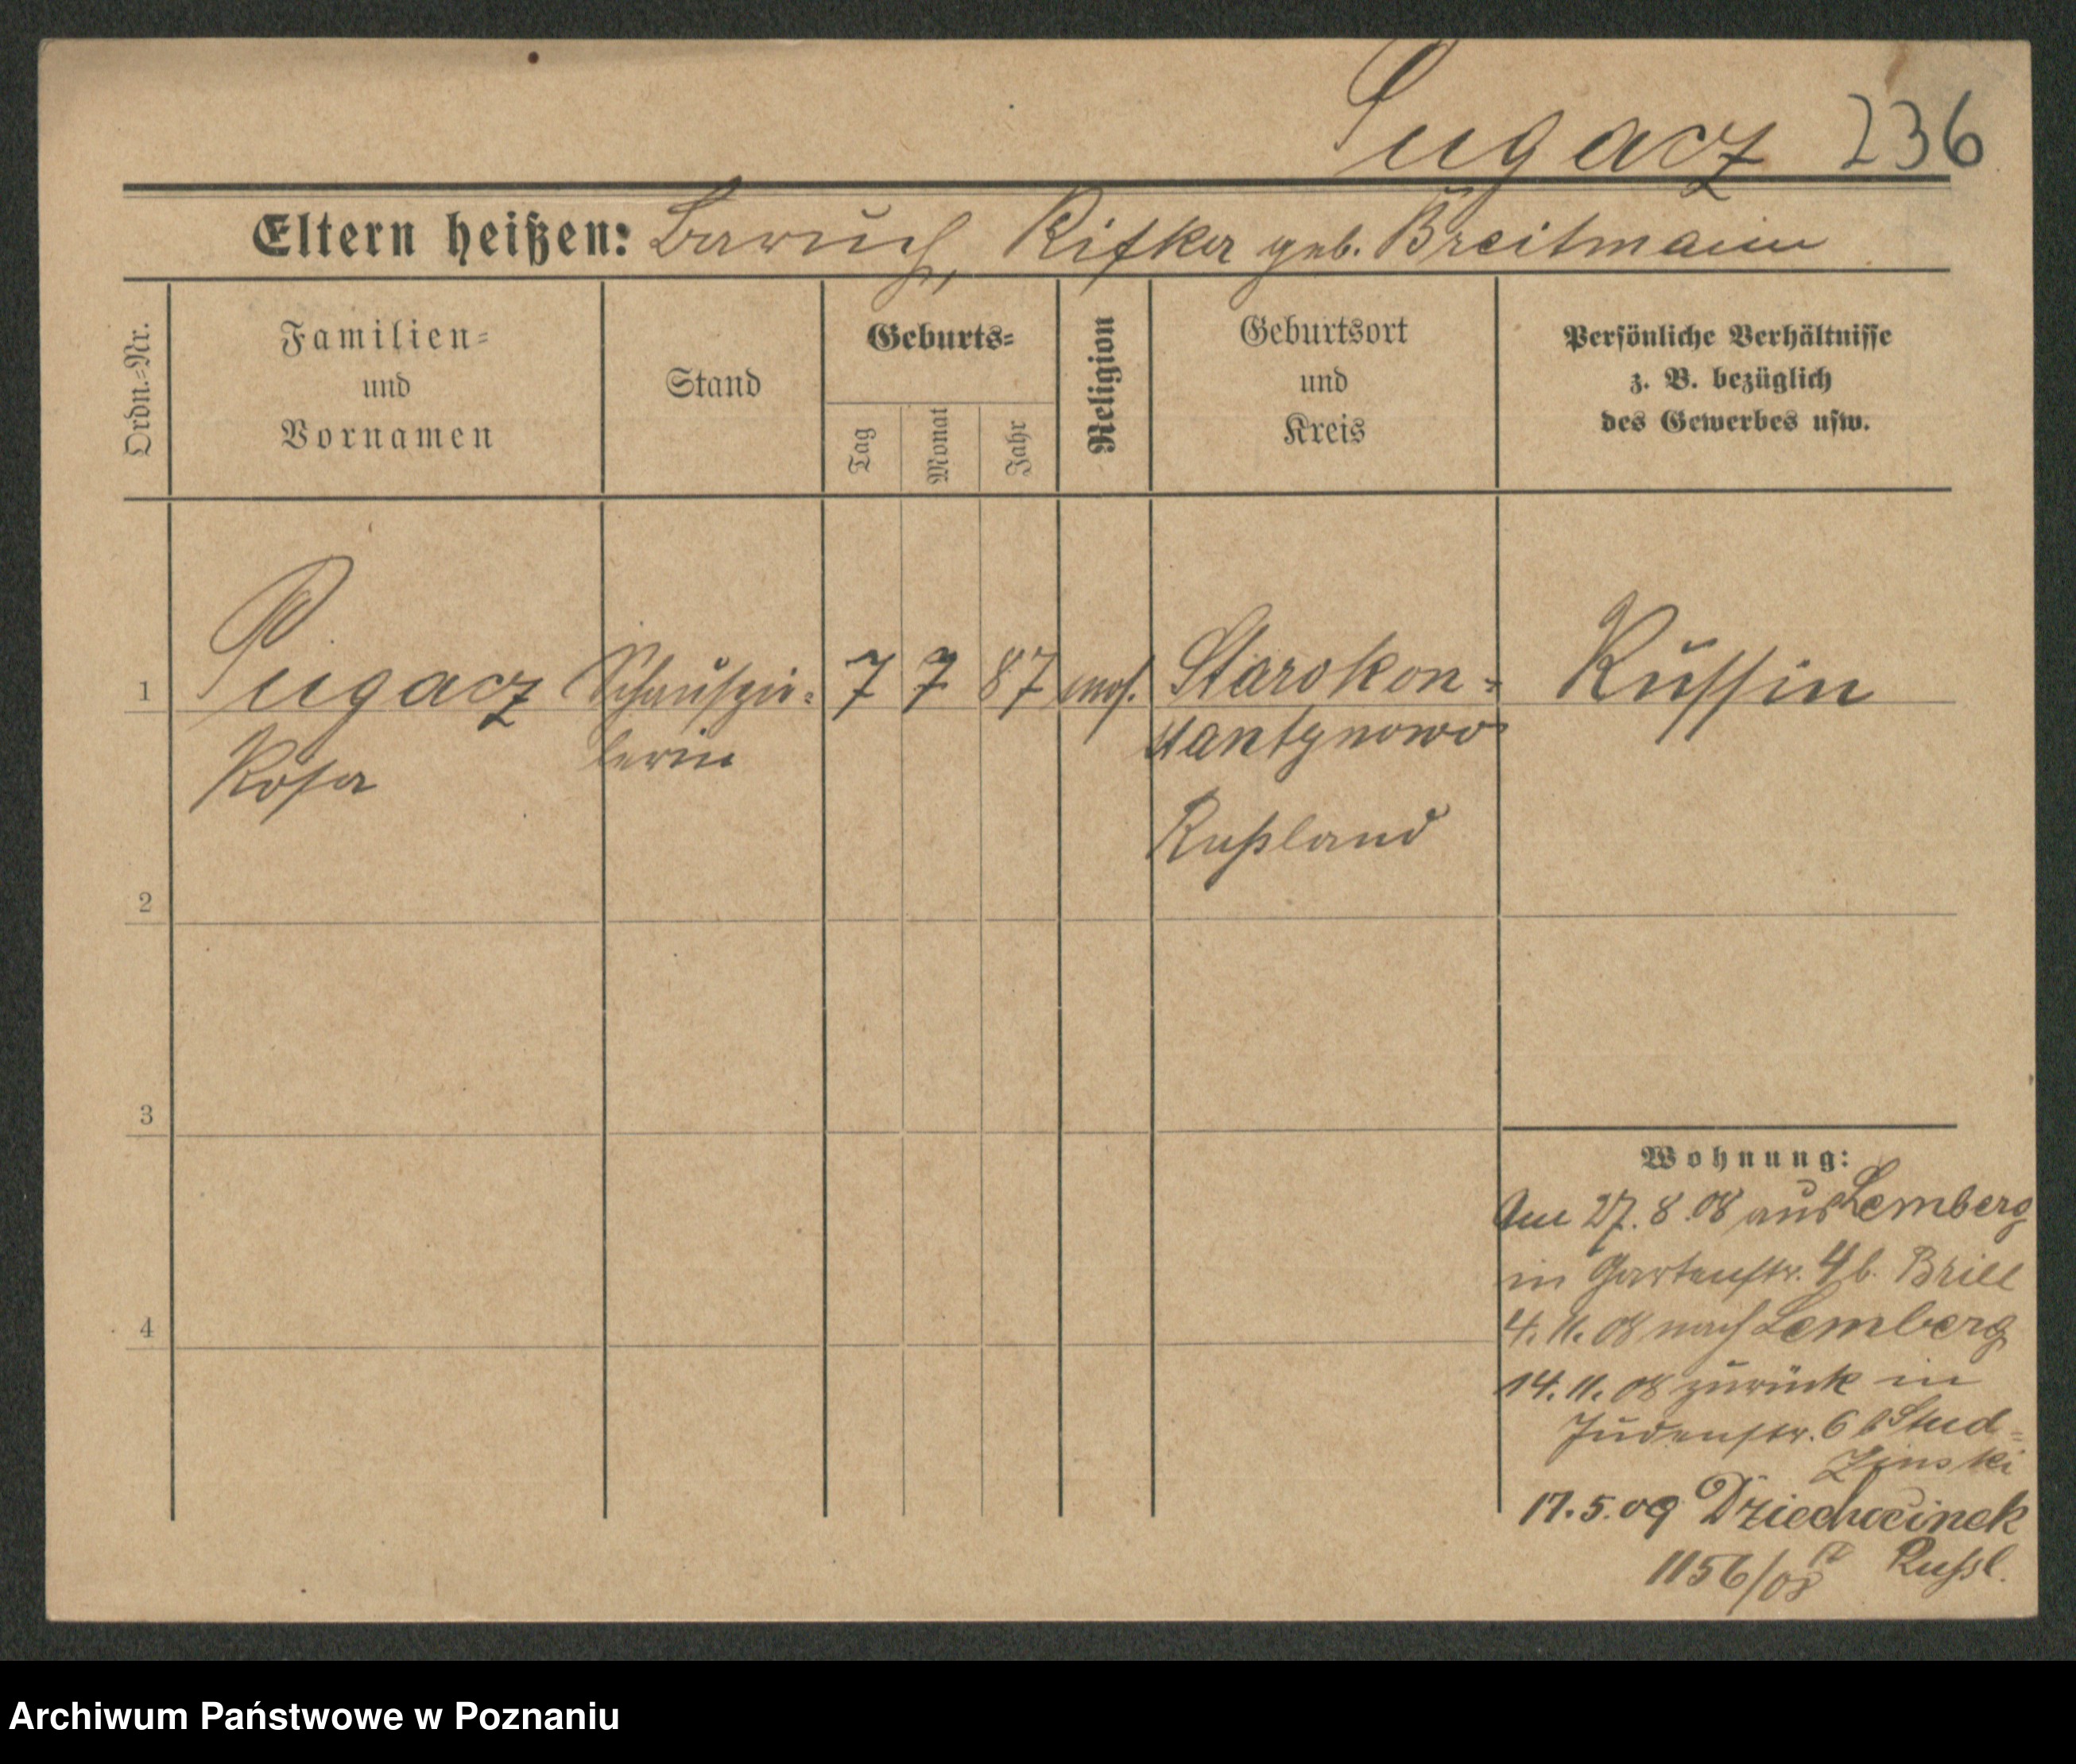 Pugacz 236
Eltern heißen: Baruch, Rifka geb. Breitmann
Ordn.-Nr.
Familien-
und
Vornamen
Stand
Geburts-
Tag
Monat
Jahr
Religion
Geburtsort
und
Kreis
Persönliche Verhältnisse
z. B. bezüglich
des Gewerbes usw.
1 Pugacz Schauspie- 7 7 87 mos. Starokon- Russin
Rosa lerin stantynowo
Rußland
2
3
4
Wohnung:
Am 27.8.08 aus Lemberg
in Gartenstr. 4 b. Brill
4.11.08 nach Lemberg
14.11.08 zurück in
Judenstr. 6 b Stud-
zinski
17.5.09 Dziechocinek
1156/08 Russl.
Archiwum Państwowe w Poznaniu